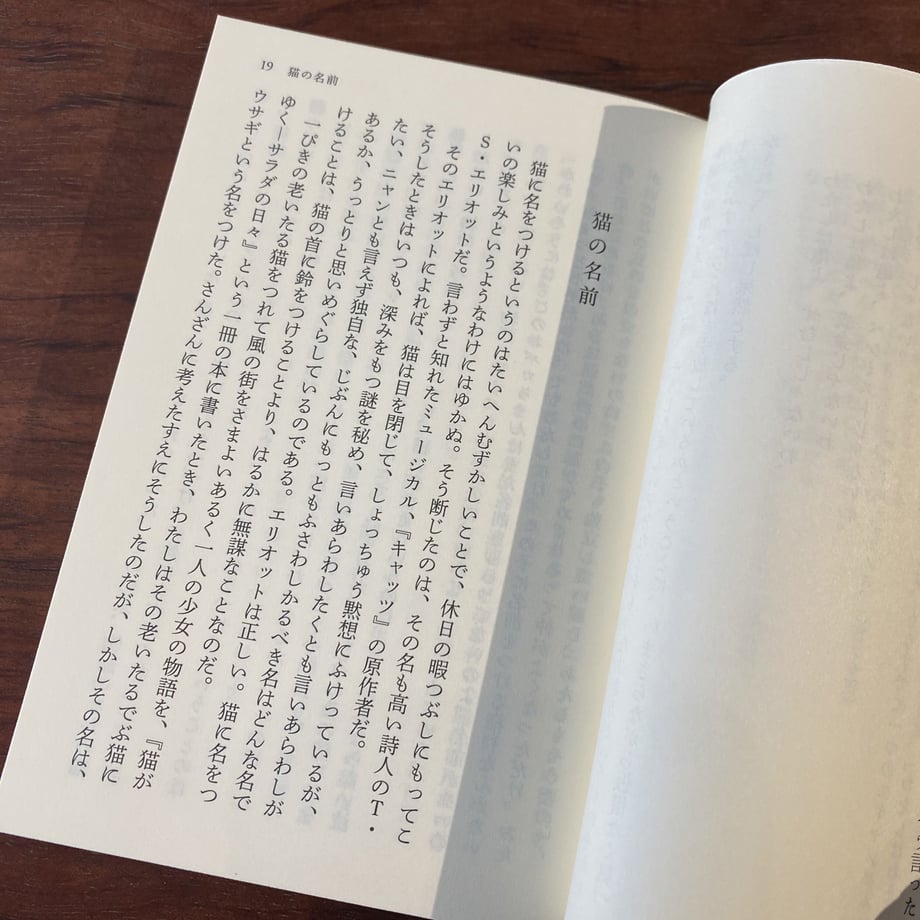 19 猫の名前
猫の名前
猫に名をつけるというのはたいへんむずかしいことで、休日の暇つぶしにもってこ
いの楽しみというようなわけにはゆかぬ。そう断じたのは、その名も高い詩人のT・
S・エリオットだ。言わずと知れたミュージカル、『キャッツ』の原作者だ。
そのエリオットによれば、猫は目を閉じて、しょっちゅう黙想にふけっているが、
そうしたときはいつも、深みをもつ謎を秘め、言いあらわしたくとも言いあらわしが
たい、ニャンとも言えず独自な、じぶんにもっともふさわしかるべき名はどんな名で
あるか、うっとりと思いめぐらしているのである。エリオットは正しい。猫に名をつ
けることは、猫の首に鈴をつけることより、はるかに無謀なことなのだ。
一ぴきの老いたる猫をつれて風の街をさまよいあるく一人の少女の物語を、『猫が
ゆく―サラダの日々』という一冊の本に書いたとき、わたしはその老いたるでぶ猫に
ウサギという名をつけた。さんざんに考えたすえにそうしたのだが、しかしその名は、
言った